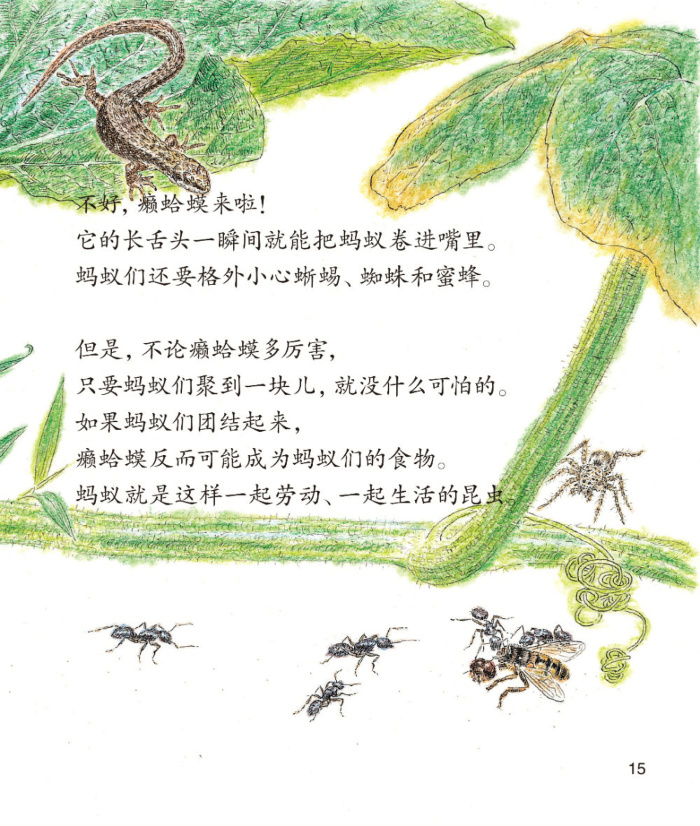 不好，癞蛤蟆来啦！
它的长舌头一瞬间就能把蚂蚁卷进嘴里。
蚂蚁们还要格外小心蜥蜴、蜘蛛和蜜蜂。
但是，不论癞蛤蟆多厉害，
只要蚂蚁们聚到一块儿，就没什么可怕的。
如果蚂蚁们团结起来，
癞蛤蟆反而可能成为蚂蚁们的食物。
蚂蚁就是这样一起劳动、一起生活的昆虫。
15